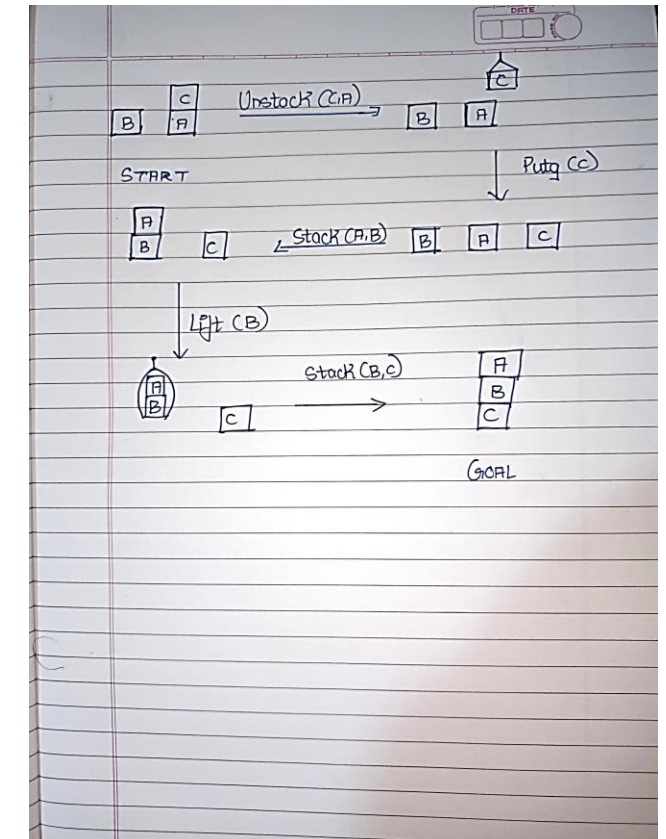 DATE
C
C Unstack (C,A)
B A B A
START Putg (C)
A
B C Stack (A,B) B A C
Lift (B)
A Stack (B,C) A
B B
C C
GOAL